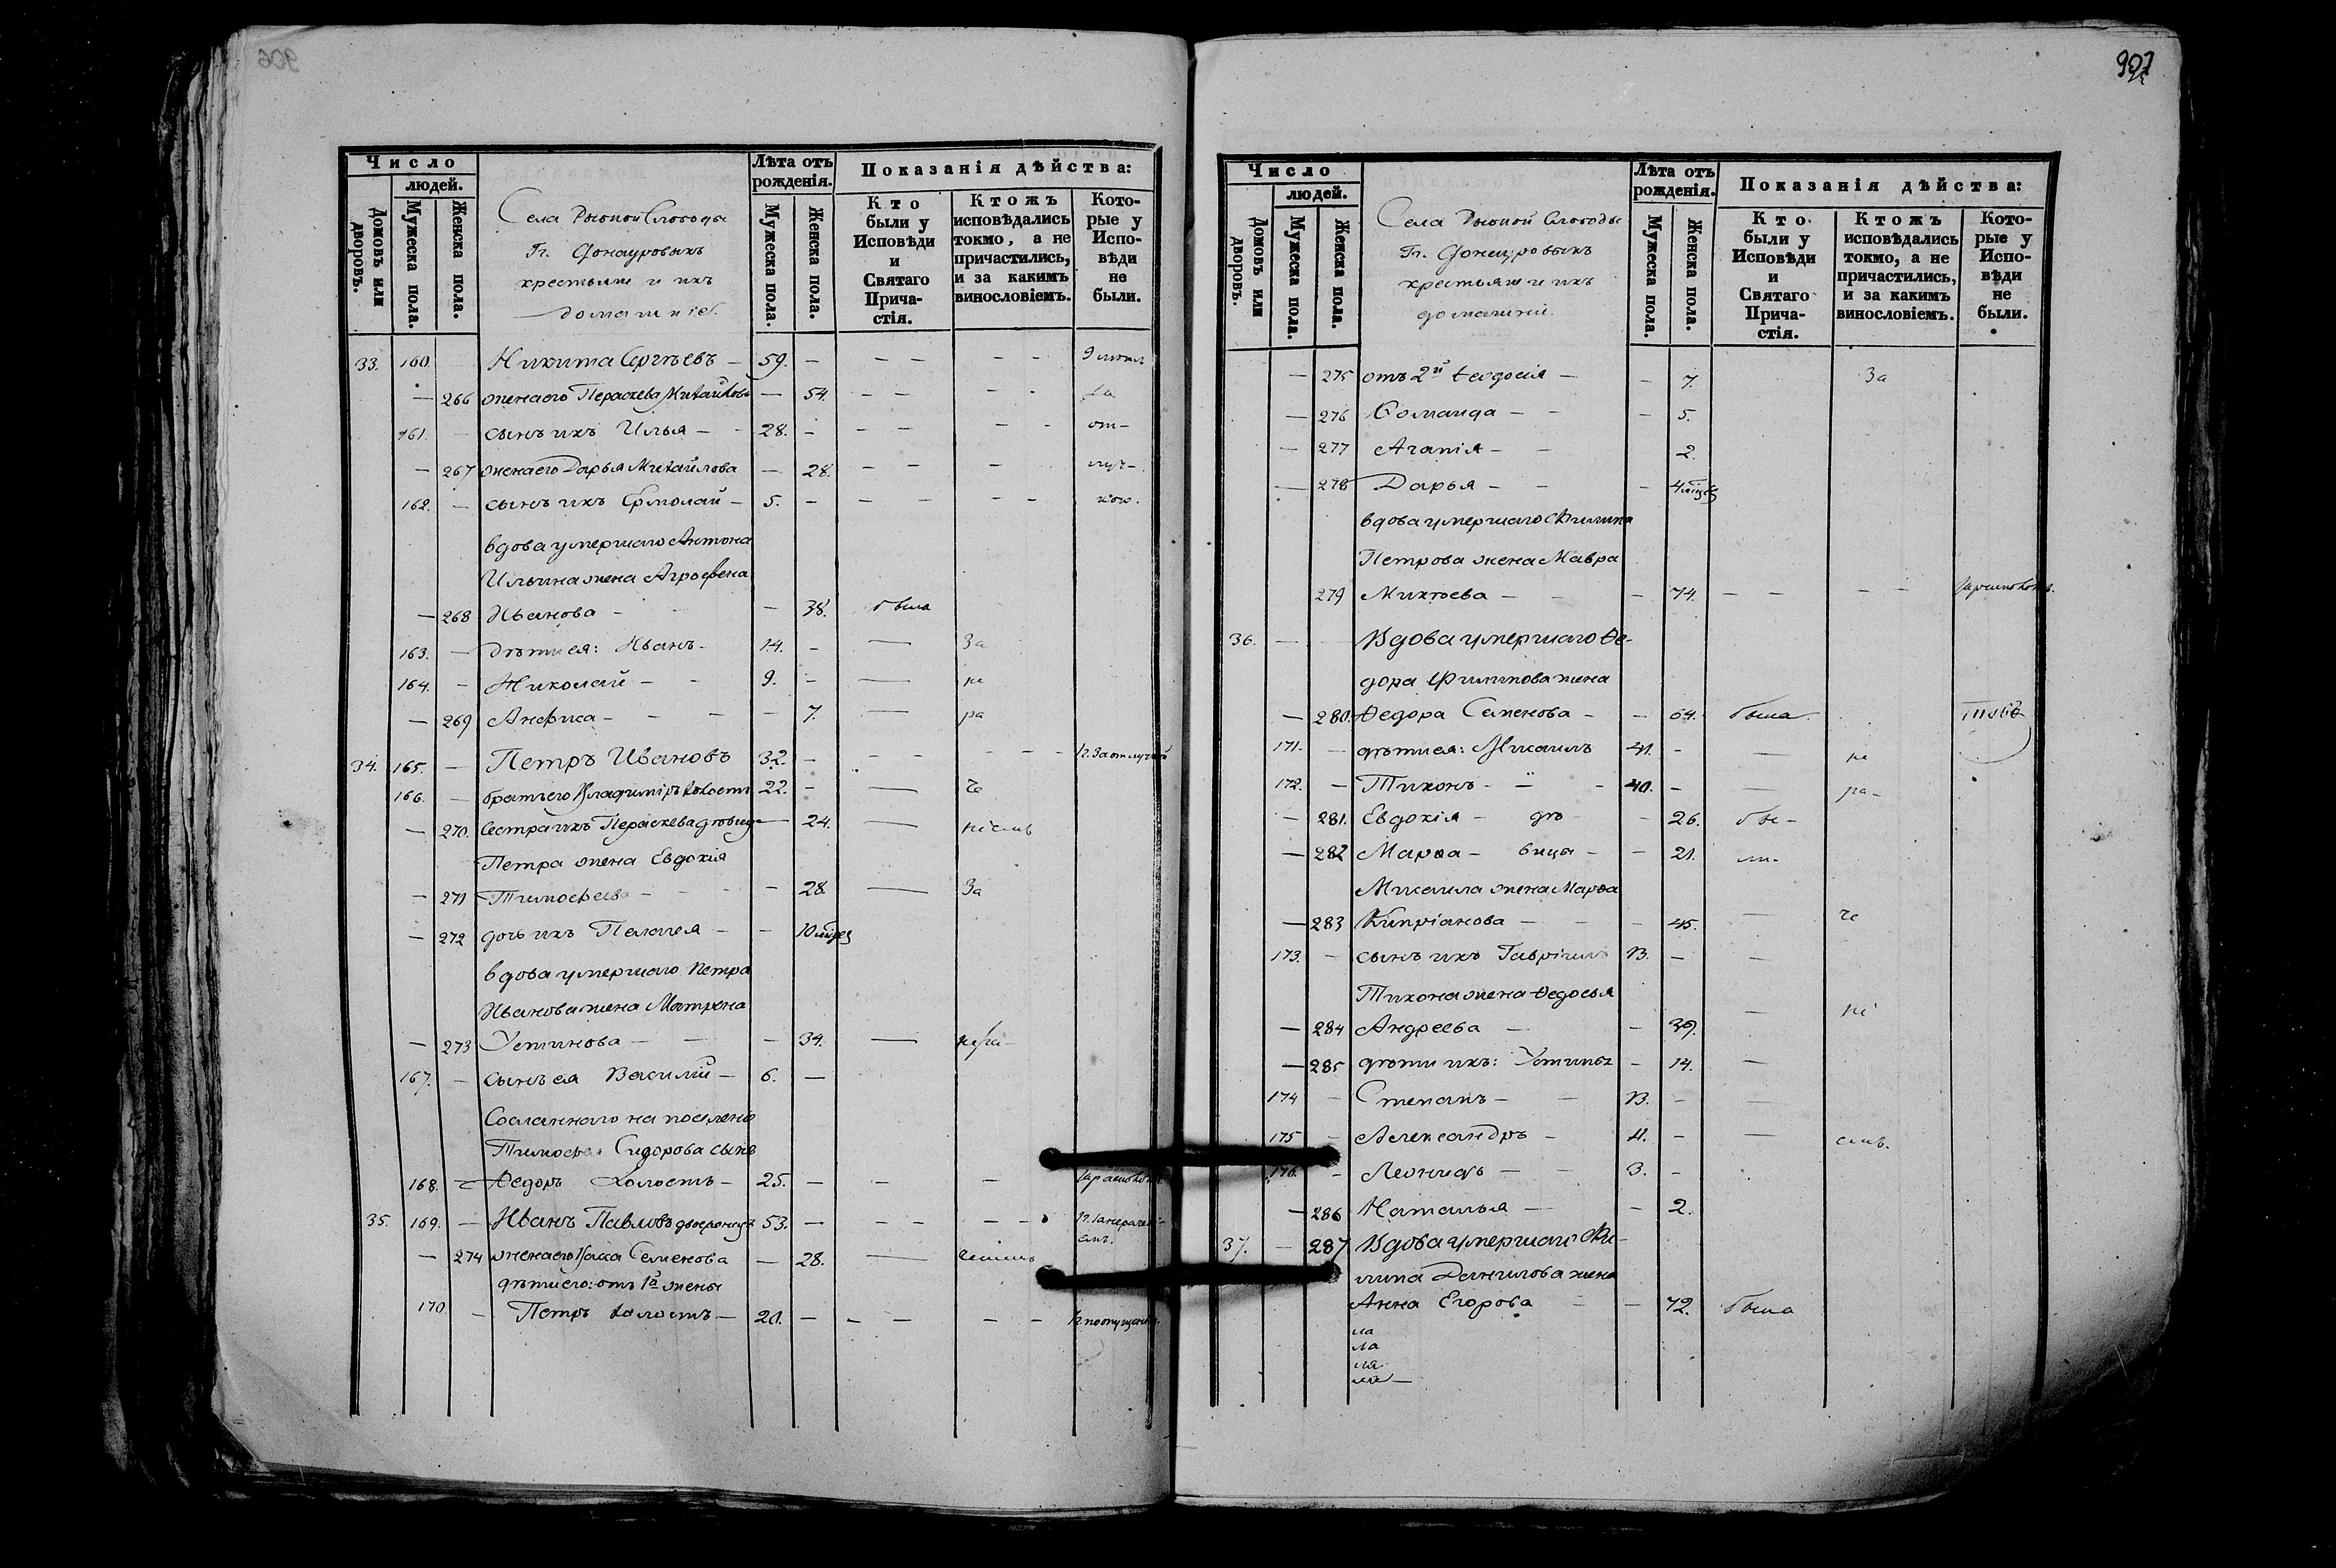 906
Число
людей.
Домовъ или дворовъ.
Мужеска пола.
Женска пола.
Села Рыбной Слободы
Гг. Фонауровыхъ
крестьяне и ихъ
домашніе.
Лѣта отъ рожденія.
Мужеска пола.
Женска пола.
Показанія дѣйства:
Кто были у Исповѣди и Святаго Прича-стія.
Ктожъ исповѣдались токмо, а не причастились, и за какимъ винословіемъ.
Кото-рые у Испо-вѣди не были.
33. 160. Никита Сергѣевъ — 59. — — —
— 266 жена его Параскева Михайлова — 54. — — — за
161. — сынъ ихъ Илья — 28. — — — — от-
— 267 жена его Дарья Михайлова — 28. — — — луч-
162. — сынъ ихъ Ермолай — 5. — — — — кою.
вдова умершаго Антона
Ильина жена Агрофена
— 268 Иванова — — 38. была
163. — дѣти ея: Иванъ — 14. — — За
164. — Николай — 9. — — не
— 269 Анфиса — — 7. — ра
34. 165. — Петръ Ивановъ 32. — — — За отлучкой
166. — братъ его Владиміръ холостъ 22. — — че
— 270. Сестра ихъ Параскева дѣвица — 24. — ніемъ
Петра жена Евдокія
— 271 Тимофеева — — 28. — За
— 272 дочь ихъ Пелагея — — 10 мѣсяц
вдова умершаго Петра
Иванова жена Матрена
— 273 Устинова — — 34. — нера-
167. — сынъ ея Василій — 6. —
Сосланнаго на поселенье
Тимофея Сидорова сынъ
168. — Федоръ холостъ — 25. — — —
35. 169. — Иванъ Павловъ двоеженецъ 53. — — — — —
— 274 жена его Васса Семенова — 28. —
дѣти его: отъ 1й жены
170. — Петръ холостъ — 20. — — — — — по опущенію
907
Число
людей.
Домовъ или дворовъ.
Мужеска пола.
Женска пола.
Села Рыбной Слободы
Гг. Фонауровыхъ
крестьяне и ихъ
домашніе.
Лѣта отъ рожденія.
Мужеска пола.
Женска пола.
Показанія дѣйства:
Кто были у Исповѣди и Святаго Прича-стія.
Ктожъ исповѣдались токмо, а не причастились, и за какимъ винословіемъ.
Кото-рые у Испо-вѣди не были.
— 275 отъ 2й Ѳеодосія — — 7. За
— 276 Соломанида — — 5.
— 277 Агапія — — 2.
— 278 Дарья — — 4 мѣсяц
вдова умершаго Филипа
Петрова жена Мавра
279 Михѣева — — 74. — — — —
36. — Вдова умершаго Ѳе-
дора Филипова жена
— 280. Ѳедора Семенова — — 64. была
171. — дѣти ея: Михаилъ 41. — — не
172. — Тихонъ — 40. — — ра-
— 281. Евдокія — дѣ- — 26. бы-
— 282 Марѳа — вица — — 21. ли-
Михаила жена Марѳа
— 283 Кипріанова — — 45. — че
173. — сынъ ихъ Гавріилъ 13. — —
Тихона жена Ѳедосья
— 284 Андреева — — 39. — ні
— 285 дѣти ихъ: Устинья — 14. —
174 — Степанъ — 13. — —
175 — Александръ — 11. — — емъ.
176. — Леонидъ — 3. —
— 286 Наталья — — 2.
37. — 287 Вдова умершаго Фи-
липа Данилова жена
Анна Егорова — — 72. была